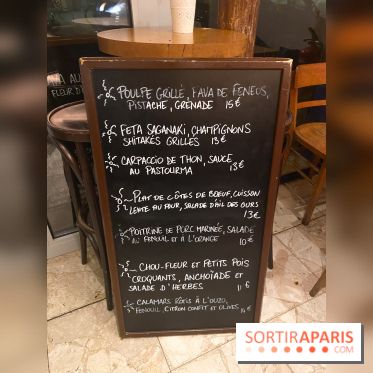 POULPE GRILLÉ, FAVA DE FENEOS,
PISTACHE, GRENADE 15€
FETA SAGANAKI, CHAMPIGNONS
SHITAKÉS GRILLÉS 13€
CARPACCIO DE THON, SAUCE
AU PASTOURMA 13€
PLAT DE CÔTES DE BOEUF, CUISSON
LENTE AU FOUR, SALADE D'AIL DES OURS
13€
POITRINE DE PORC MARINÉE, SALADE
AU FENOUIL ET À L'ORANGE 10€
CHOU-FLEUR ET PETITS POIS
CROQUANTS, ANCHOÏADE ET
SALADE D'HERBES 11€
CALAMARS RÔTIS À L'OUZO,
FENOUIL, CITRON CONFIT ET OLIVES 14€
SORTIRAPARIS
.COM